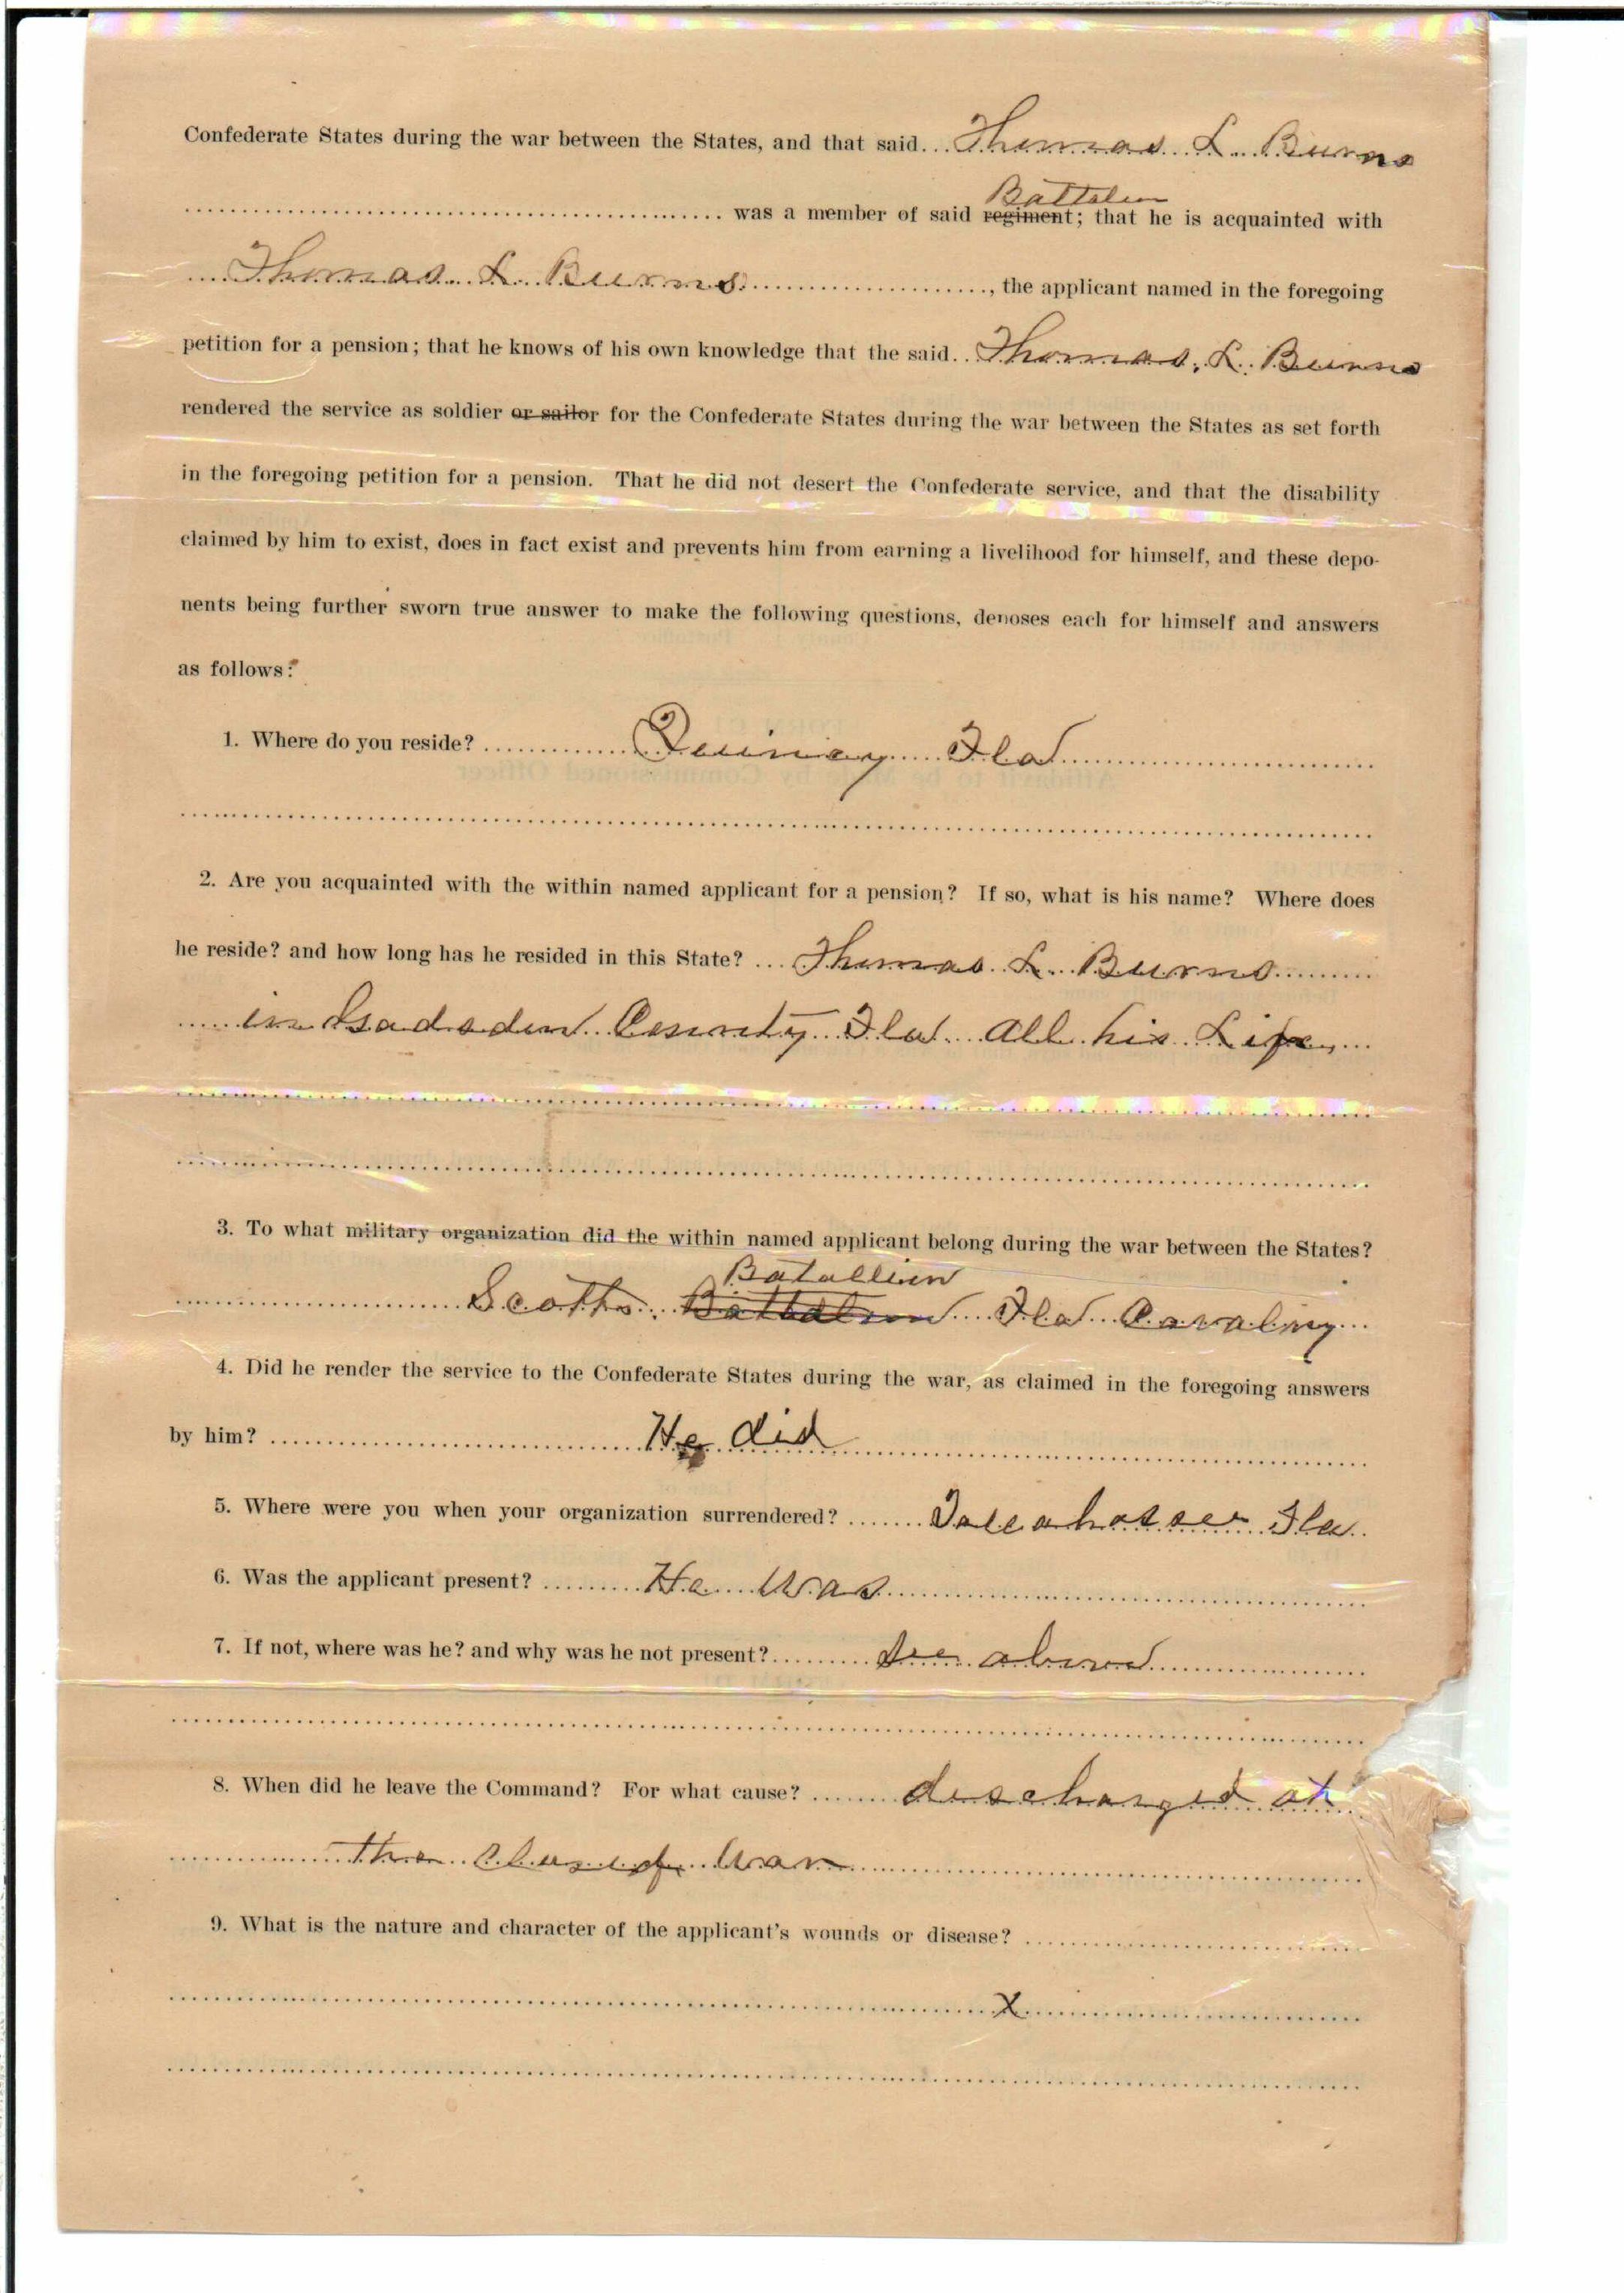 Confederate States during the war between the States, and that said... Thomas L. Burns
was a member of said regiment; that he is acquainted with
Battalion
Thomas L. Burns, the applicant named in the foregoing
petition for a pension; that he knows of his own knowledge that the said.. Thomas L. Burns
rendered the service as soldier or sailor for the Confederate States during the war between the States as set forth
in the foregoing petition for a pension. That he did not desert the Confederate service, and that the disability
claimed by him to exist, does in fact exist and prevents him from earning a livelihood for himself, and these depo-
nents being further sworn true answer to make the following questions, deposes each for himself and answers
as follows:
1. Where do you reside? Quincy Fla
2. Are you acquainted with the within named applicant for a pension? If so, what is his name? Where does
he reside? and how long has he resided in this State? Thomas L. Burns
in Gadsden County Fla All his Life
3. To what military organization did the within named applicant belong during the war between the States?
Batallion
Scotts Battalion Fla Cavalry
4. Did he render the service to the Confederate States during the war, as claimed in the foregoing answers
by him? He did
5. Where were you when your organization surrendered? Tallahassee Fla.
6. Was the applicant present? He was
7. If not, where was he? and why was he not present? See above
8. When did he leave the Command? For what cause? discharged at
the close of war
9. What is the nature and character of the applicant's wounds or disease?
X